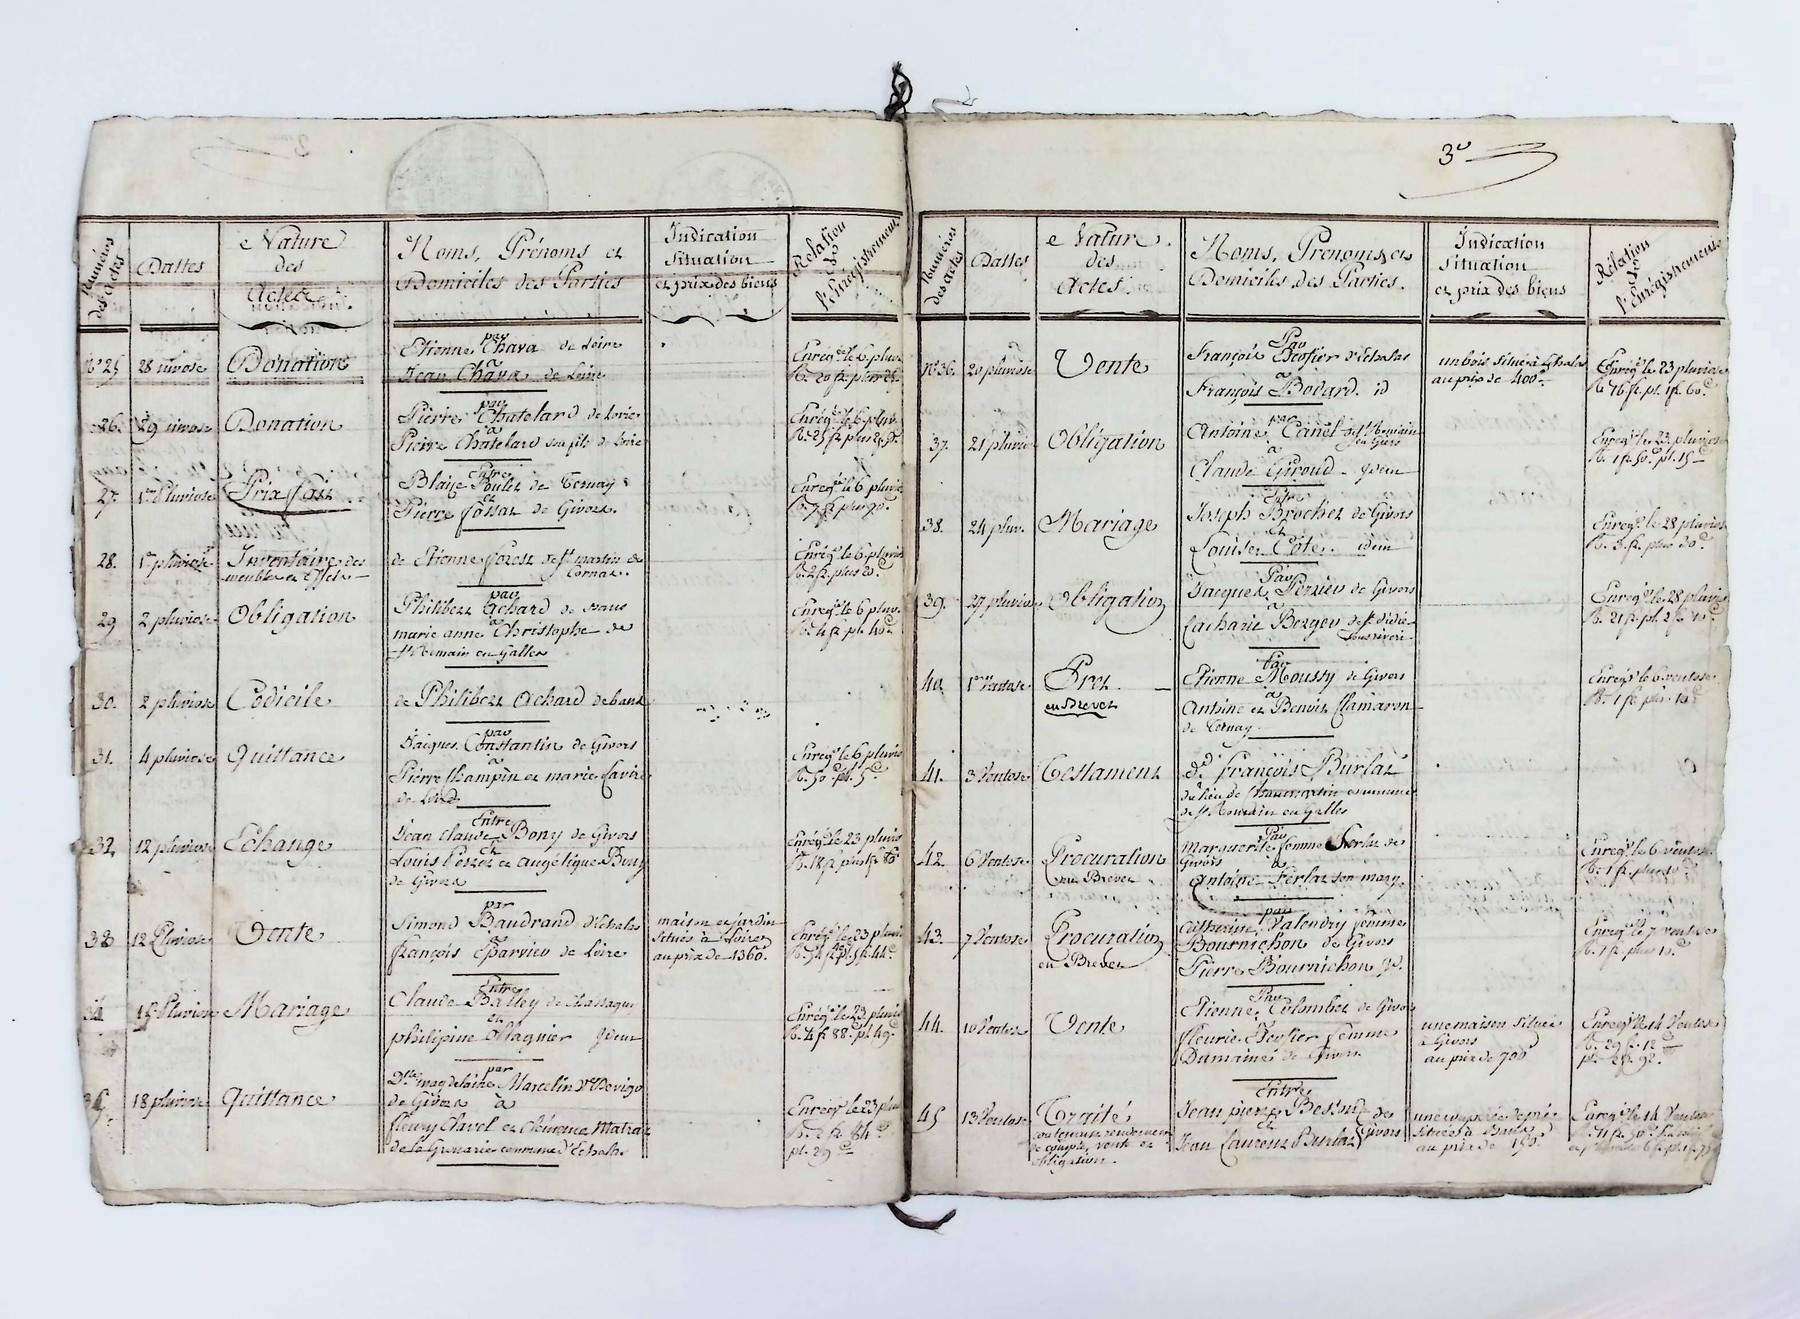 3e
Numéros des actes
Dattes
Nature
des
Actes
Noms, Prénoms et
Domiciles des Parties
Indication
Situation
et prix des biens
Rélation
de
l'Enregistrement
No 25
28 nivose
Donation
par
Etienne Chava de Loire
à
Jean Chava de Loire
Enregé le 6 pluv
26.
29 nivose
Donation
par
Pierre Chatelard de Loire
à
Pierre Chatelard son fils de Loire
Enregé le 6 pluv
27.
1er Pluviose
Prix fait
Entre
Blaise Poulet de Ternay
et
Pierre fossat de Givors
Enregé le 6 pluvi
28.
1er pluviose
Inventaire des
meubles et effets
de Etienne forest de st martin de
Cornas.
Enregé le 6 pluvio
R. 2 fr. plus 20c
29
2 pluviose
Obligation
par
Philibert Achard de
à
marie anne Christophe de
st Romain en Galles
Enregé le 6 pluv.
R. 4 fr pl. 40c
30.
2 pluviose
Codicile
de Philibert Achard de bans
31.
4 pluviose
Quittance
par
Jacques Constantin de Givors
à
Pierre Champin et marie
de Loire
Enregé le 6 pluvio
R. 50c pl. 5c
32
12 pluviose
Echange
Entre
Jean Claude Bony de Givors
et
Louis et angélique Bony
de Givors
Enregé le 23 pluvio
33
12 Pluviose
Vente
par
Simond Baudrand d'Echalas
à
françois Charvieu de Loire
maison et jardin
situés à Loire
au prix de 1360.
Enregé le 23 pluvi
34
15 Pluviose
Mariage
Entre
Claude Balley de Chassagny
et
philipine idem
Enregé le 23 pluvio
R. 4 fr 88c pl. 49c
35.
18 pluviose
Quittance
par
Dlle magdelaine Marcelin ve
de Givors à
fleury Chavel et Clémence Matrat
de la commune d'Echalas
Enregé le 23 pluv
R. 2 fr. 84c
pl. 29c
Numéros des actes
Dattes
Nature
des
Actes.
Noms, Prénoms et
Domiciles des Parties.
Indication
Situation
et prix des biens
Rélation
de
l'Enregistrement
No 36.
20 pluviose
Vente
Par
François d'Echalas
à
François Bodard. id
un bois situé à Echalas
au prix de 400f.
Enregé le 23 pluviose
R. 16 fr. pl. 1 fr. 60c
37.
21 pluvio
Obligation
par
Antoine Canel de st Romain
en Giers
à
Claude Giroud idem
Enregé le 23 pluviose
R. 1 fr. 50c pl. 15c
38.
24 pluv.
Mariage
Entre
Joseph Brochet de Givors
et
Louise Cote. idem
Enregé le 28 pluviose
R. 3 fr. plus 30c
39.
27 pluvio
Obligation
Par
Jacques Perrieu de Givors
à
Zacharie Berger de st didier
sous riverie
Enregé le 28 pluvio
40.
1er Ventose
Pret
en Brevet
Par
Etienne Moussy de Givors
à
Antoine et Benoit flamaron
de Ternay
Enregé le 6 ventose
R. 1 fr. plus 10c
41.
3 Ventose
Testament
de François Burlat
du lieu de commune
de st Romain en Galles
42.
6 Ventose
Procuration
en Brevet
Par
marguerite femme ferlat de
Givors
à
Antoine ferlat son mary
Enregé le 6 ventos.
R. 1 fr. plus 10c
43.
7 Ventose
Procuration
en Brevet
par
Catherine Valendry femme
Bournichon de Givors
à
Pierre Bournichon
Enregé le 7 ventose
R. 1 fr. plus 10c
44.
10 Ventose
Vente
Par
Etienne Colombet de Givors
à
fleurie femme
Dumaine de Givors
une maison située
à Givors
au prix de 700f
Enregé le 14 Ventose
R. 29 fr. 12c
pl. 2 fr. 92c
45
13 Ventose
Traité
contenant reddition
de compte, vente et
obligation.
Entre
Jean pierre de
et
Jean Laurent Burlat Givors
située à Bans
au prix de 190f
Enregé le 14 Ventose